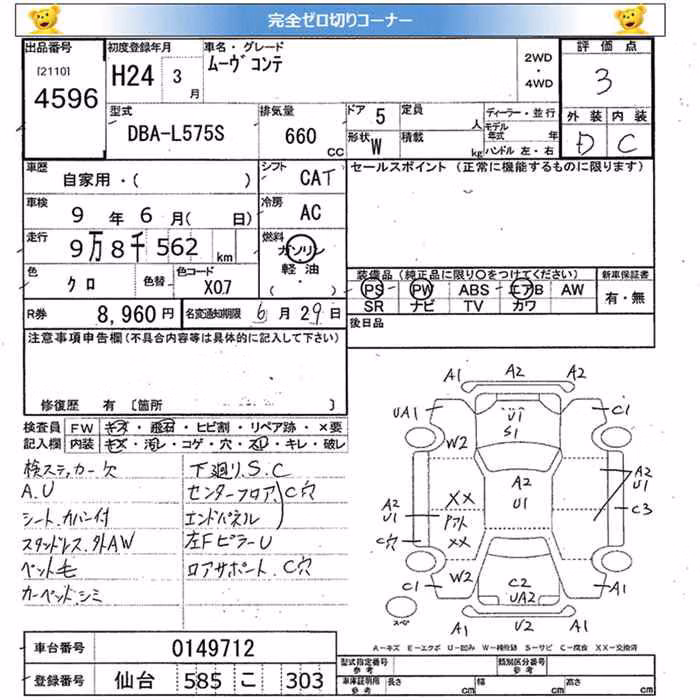 完全ゼロ切りコーナー
出品番号
[2110]
4596
初度登録年月
H24 3月
車名・グレード
ムーヴコンテ
2WD
・
4WD
評価点
3
外装 内装
D C
型式
DBA-L575S
排気量
660 CC
ドア 5
形状 W
定員 人
積載 kg
ディーラー・並行
モデル年式 年
ハンドル 左・右
車歴
自家用・( )
シフト
CAT
セールスポイント (正常に機能するものに限ります)
車検
9 年 6 月( 日)
冷房
AC
走行
9万8千562 km
燃料
ガソリン
軽油
( ・ )
色
クロ
色替
色コード
X07
装備品(純正品に限り○をつけてください)
PS PW ABS エアB AW
SR ナビ TV カワ
新車保証書
有・無
R券 8,960円
名変通知期限 6月29日
後日品
注意事項申告欄(不具合内容等は具体的に記入して下さい)
修復歴 有 [箇所 ]
検査員記入欄
FW キズ・飛石・ヒビ割・リペア跡・×要
内装 キズ・汚レ・コゲ・穴・スレ・キレ・破レ
検ステッカー欠
A.U
シート.カバー付
スタッドレス.外AW
ペット毛
カーペット.シミ
下廻りS.C
センターフロア
エンドパネル
C穴
左FピラーU
ロアサポート.C穴
A1 A2 A2
UA1 U1 S1 C1
W2
A2 U1
XX
A2 U1
A2 U1
Pアト
C3
C穴
XX
W2
C1 C2 UA2 A1
スペ
A1 U2 A2
A-キズ E-エクボ U-凹み W-補修跡 S-サビ C-腐食 XX-交換済
車台番号 0149712
登録番号 仙台 585 こ 303
型式指定番号 参考
類別区分番号 参考
車庫証明用 参考
長さ cm
幅 cm
高さ cm